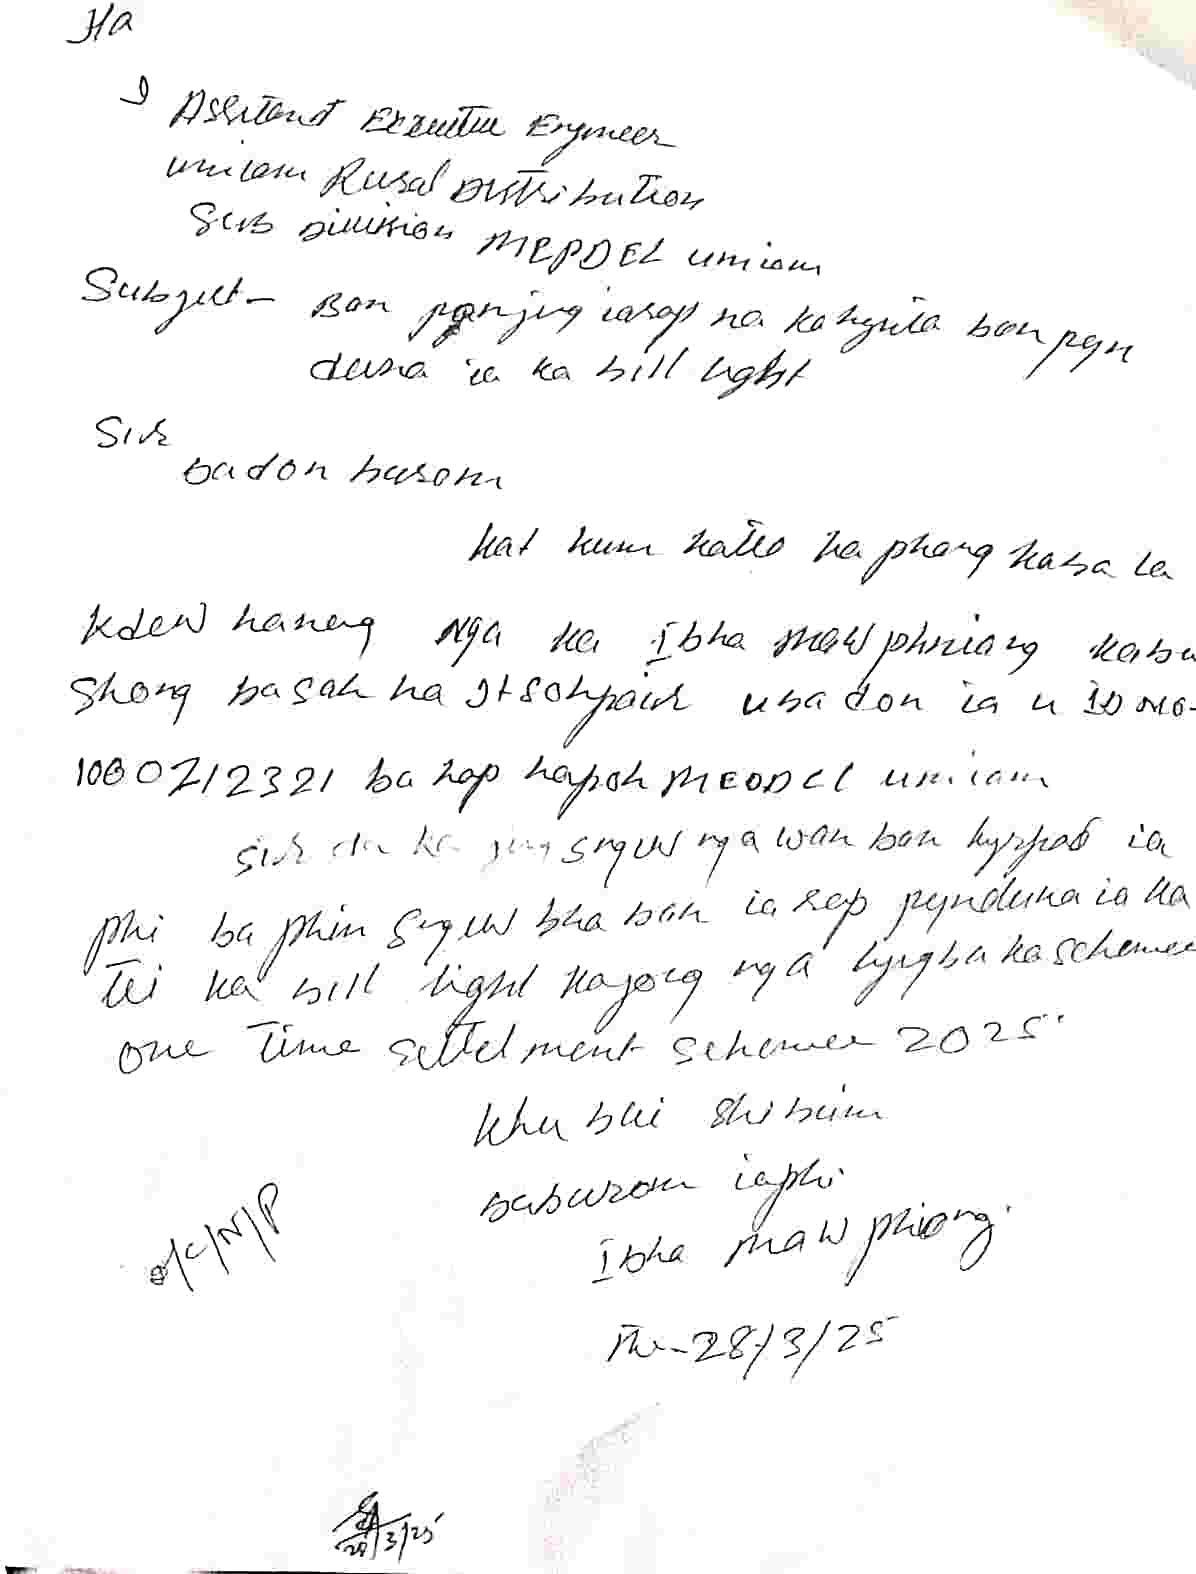 Ha
I Assitant Executive Engineer
umiam Rural Distribution
Sub Division MEPDEL umiam
Subject - Ban pynjing iarap na ka hynita ban pyn
duna ia ka bill light
Sir
badon burom
kat kum katto ka phang kaba la
kdew haneng nga ka Ibha Mawphniang kaba
shong basah ha It sohpair uba don ia u ID No-
1000712321 ba hap hapoh MEPDCL umiam
Sir da ka jing sngew nga wan ban kyrpad ia
phi ba phin sngew bha ban iarap pynduna ia ka
tei ka bill light kajong nga lyngba ka schemee
one Time settelment schemee 2025.
khublei shibun
baburom iaphi
Ibha Mawphiang.
The-28/3/25
/C/N/P
28/3/25